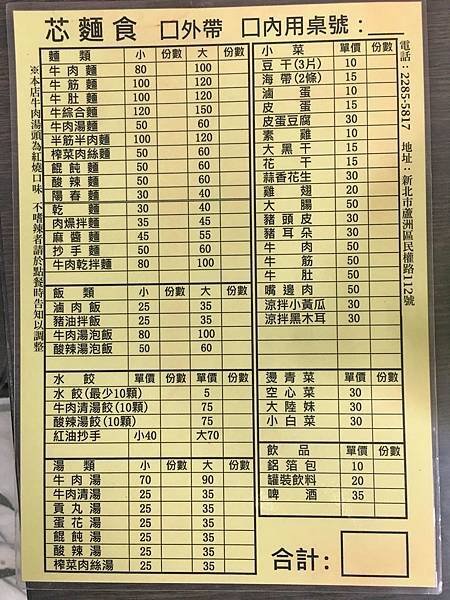 芯麵食 口外帶 口內用桌號：
麵類 小 份數 大 份數
牛肉麵 80 100
牛筋麵 100 120
牛肚麵 100 120
牛綜合麵 120 150
牛肉湯麵 50 60
半筋半肉麵 100 120
榨菜肉絲麵 50 60
餛飩麵 50 60
酸辣麵 50 60
陽春麵 30 40
乾麵 30 40
肉燥拌麵 35 45
麻醬麵 45 55
抄手麵 50 60
牛肉乾拌麵 80 100
飯類 小 份數 大 份數
滷肉飯 25 35
豬油拌飯 25 35
牛肉湯泡飯 80 100
酸辣湯泡飯 50 60
水餃 單價 份數 單價 份數
水餃(最少10顆) 5
牛肉清湯餃(10顆) 75
酸辣湯餃(10顆) 75
紅油抄手 小40 大70
湯類 小 份數 大 份數
牛肉湯 70 90
牛肉清湯 25 35
貢丸湯 25 35
蛋花湯 25 35
餛飩湯 25 35
酸辣湯 25 35
榨菜肉絲湯 25 35
小菜 單價 份數
豆干(3片) 10
海帶(2條) 15
滷蛋 10
皮蛋 15
皮蛋豆腐 30
素雞 10
大黑干 15
花干 15
蒜香花生 30
雞翅 20
大腸 50
豬頭皮 50
豬耳朵 50
牛肉 50
牛筋 50
牛肚 50
嘴邊肉 50
涼拌小黃瓜 30
涼拌黑木耳 30
燙青菜 單價 份數
空心菜 30
大陸妹 30
小白菜 30
飲品 單價 份數
鋁箔包 10
罐裝飲料 20
啤酒 35
合計：
※本店牛肉湯頭為紅燒口味 不嗜辣者請於點餐時告知以調整
電話：2285-5817 地址：新北市蘆洲區民權路112號